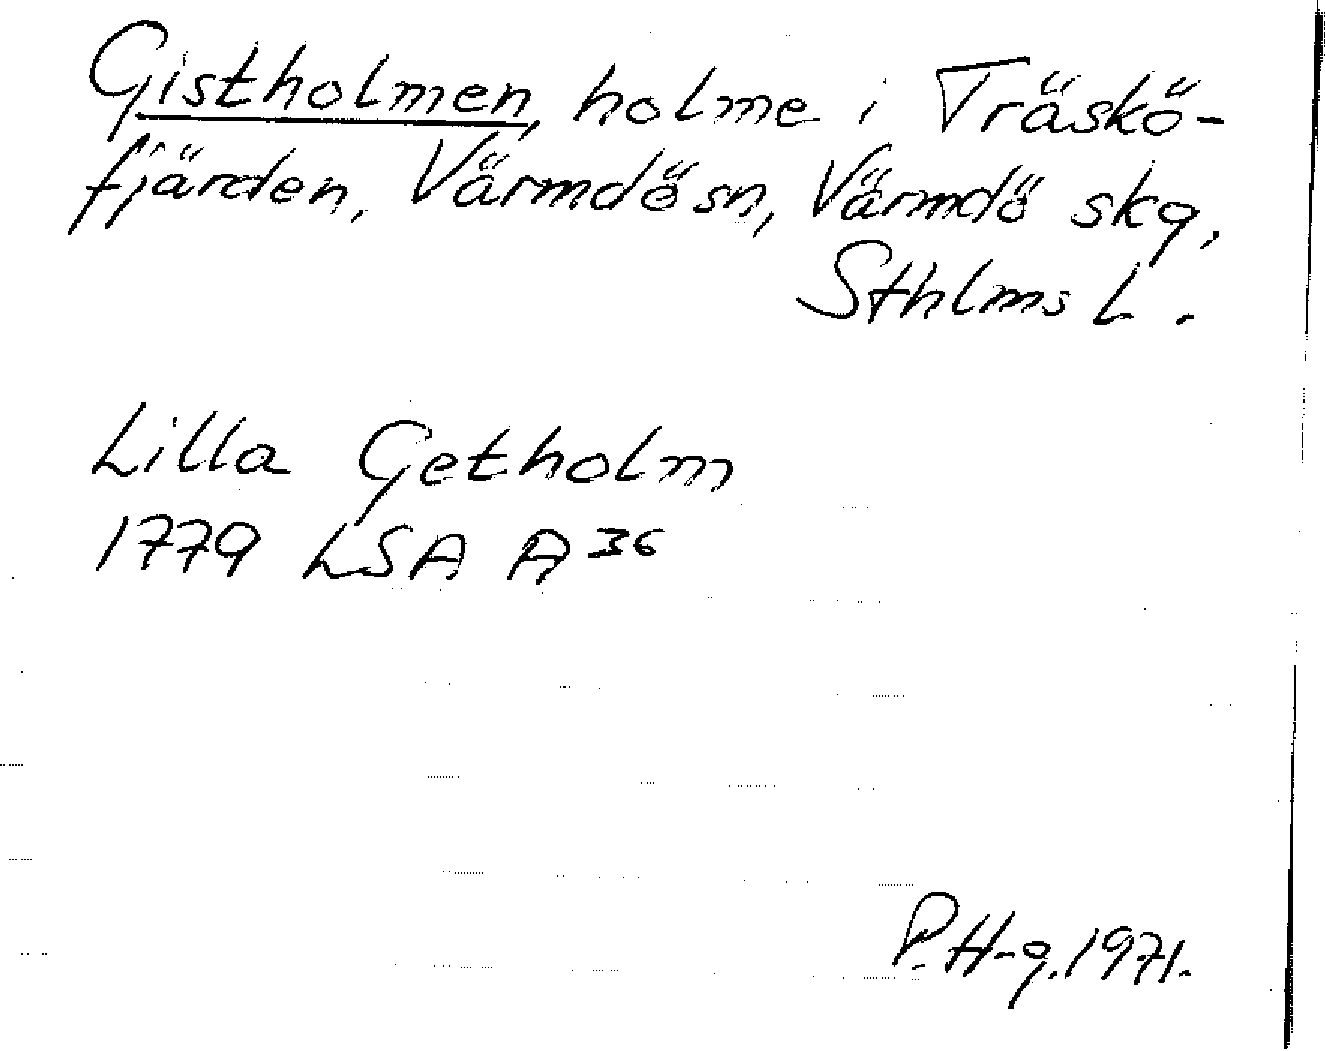 Gistholmen, holme i Träskö-
fjärden, Värmdö sn, Värmdö skg,
Sthlms L.
Lilla Getholm
1779 LSA A 36
P. H-g. 1971.